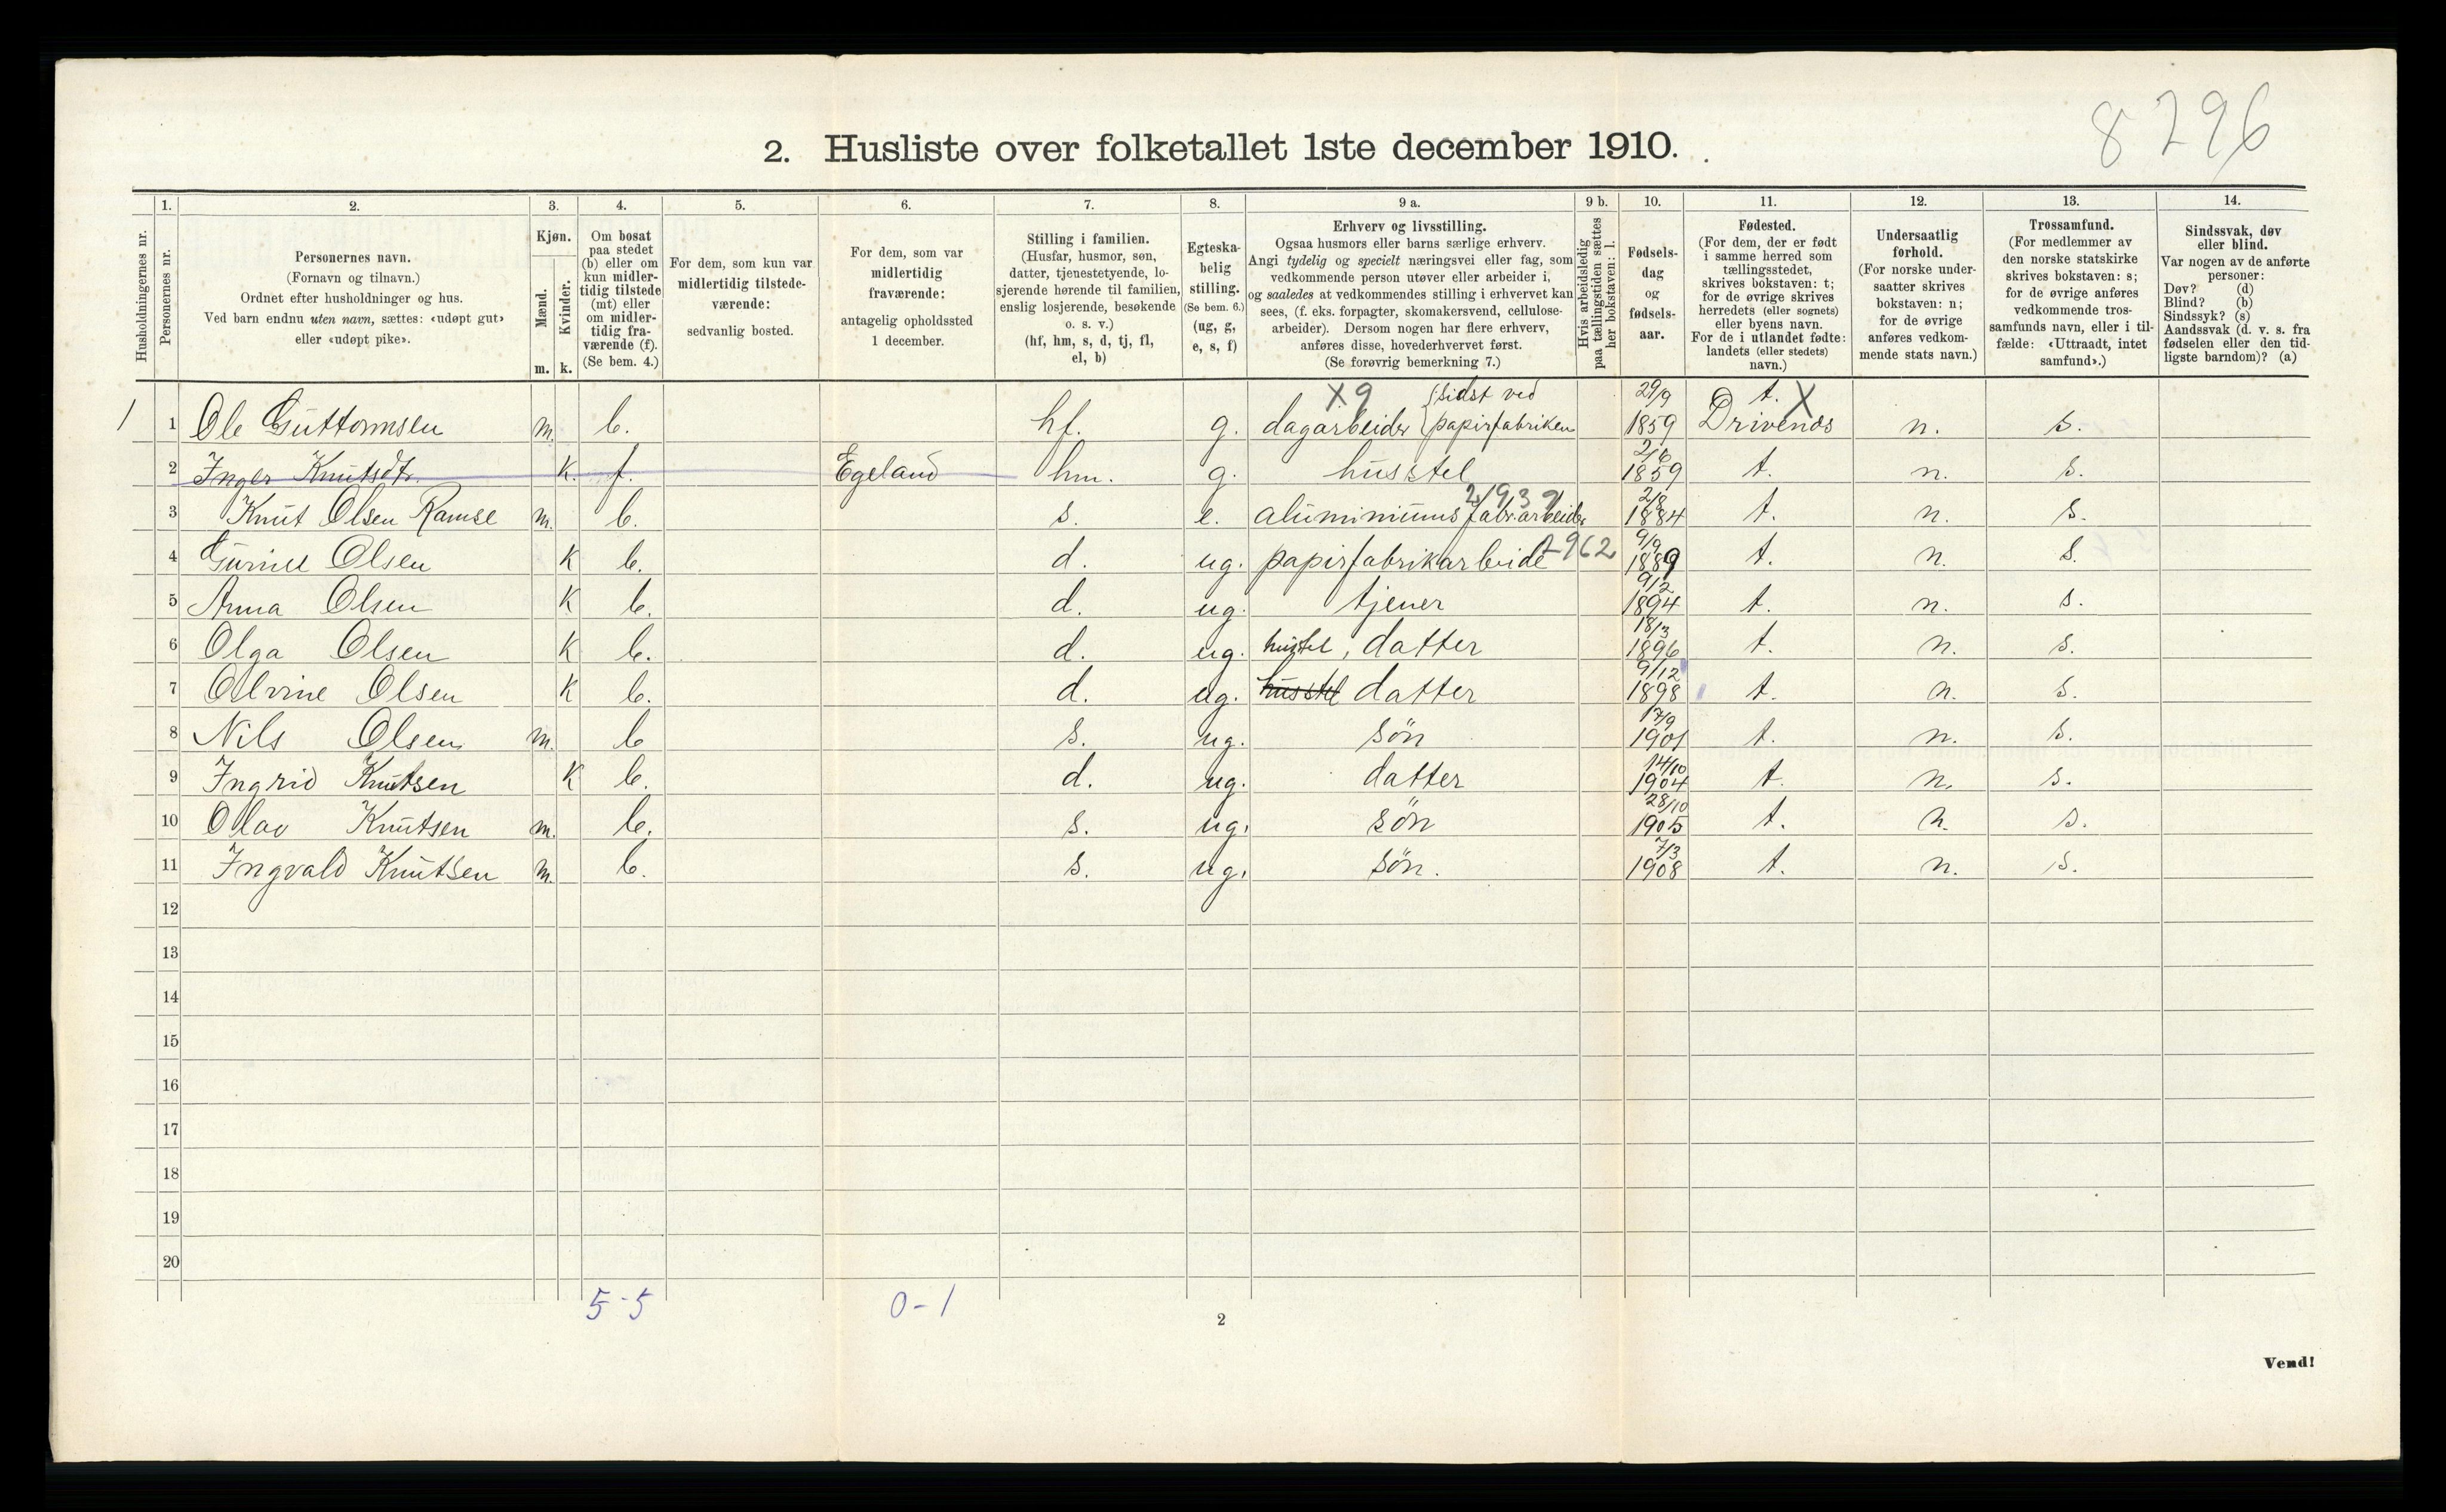 8296
2. Husliste over folketallet 1ste december 1910.
Husholdningernes nr.
1.
Personernes nr.
2.
Personernes navn.
(Fornavn og tilnavn.)
Ordnet efter husholdninger og hus.
Ved barn endnu uten navn, sættes: «udøpt gut»
eller «udøpt pike».
3.
Kjøn.
Mænd.
Kvinder.
m. k.
4.
Om bosat
paa stedet
(b) eller om
kun midler-
tidig tilstede
(mt) eller
om midler-
tidig fra-
værende (f).
(Se bem. 4.)
5.
For dem, som kun var
midlertidig tilstede-
værende:
sedvanlig bosted.
6.
For dem, som var
midlertidig
fraværende:
antagelig opholdssted
1 december.
7.
Stilling i familien.
(Husfar, husmor, søn,
datter, tjenestetyende, lo-
sjerende hørende til familien,
enslig losjerende, besøkende
o. s. v.)
(hf, hm, s, d, tj, fl,
el, b)
8.
Egteska-
belig
stilling.
(Se bem. 6.)
(ug, g,
e, s, f)
9 a.
Erhverv og livsstilling.
Ogsaa husmors eller barns særlige erhverv.
Angi tydelig og specielt næringsvei eller fag, som
vedkommende person utøver eller arbeider i,
og saaledes at vedkommendes stilling i erhvervet kan
sees, (f. eks. forpagter, skomakersvend, cellulose-
arbeider). Dersom nogen har flere erhverv,
anføres disse, hovederhvervet først.
(Se forøvrig bemerkning 7.)
9 b.
Hvis arbeidsledig
paa tællingstiden sættes
her bokstaven: l.
10.
Fødsels-
dag
og
fødsels-
aar.
11.
Fødested.
(For dem, der er født
i samme herred som
tællingsstedet,
skrives bokstaven: t;
for de øvrige skrives
herredets (eller sognets)
eller byens navn.
For de i utlandet fødte:
landets (eller stedets)
navn.)
12.
Undersaatlig
forhold.
(For norske under-
saatter skrives
bokstaven: n;
for de øvrige
anføres vedkom-
mende stats navn.)
13.
Trossamfund.
(For medlemmer av
den norske statskirke
skrives bokstaven: s;
for de øvrige anføres
vedkommende tros-
samfunds navn, eller i til-
fælde: «Uttraadt, intet
samfund».)
14.
Sindssvak, døv
eller blind.
Var nogen av de anførte
personer:
Døv? (d)
Blind? (b)
Sindssyk? (s)
Aandssvak (d. v. s. fra
fødselen eller den tid-
ligste barndom)? (a)
X9 {sidst ved 29/9 t. X
1 1 Ole Guttormsen m. b. hf. g. dagarbeider papirfabriken 1859 Drivenes n. s.
2 Inger Knutsdtr. k. f. Egeland hm. g. husstel 2/6 1859 t. n. s.
3 Knut Olsen Ramse m. b. s. e. aluminiums fabr.arbeider 2/8 1884 t. n. s.
4 Gunild Olsen k b. d. ug. papirfabrikarbeide 7962 9/9 1889 t. n. s.
5 Anna Olsen k b. d. ug. tjener 9/2 1894 t. n. s.
6 Olga Olsen k b. d. ug. hustel, datter 18/3 1896 t. n. s.
7 Olvine Olsen k b. d. ug. husstel datter 9/12 1898 t. n. s.
8 Nils Olsen m. b s. ug. søn 17/9 1901 t. n. s.
9 Ingrid Knutsen k b. d. ug. datter 14/10 1904 t. n. s.
10 Olav Knutsen m. b. s. ug. søn 28/10 1905 t. n. s.
11 Ingvald Knutsen m. b. s. ug. søn. 7/3 1908 t. n. s.
12
13
14
15
16
17
18
19
20
5-5 0-1
2
Vend!